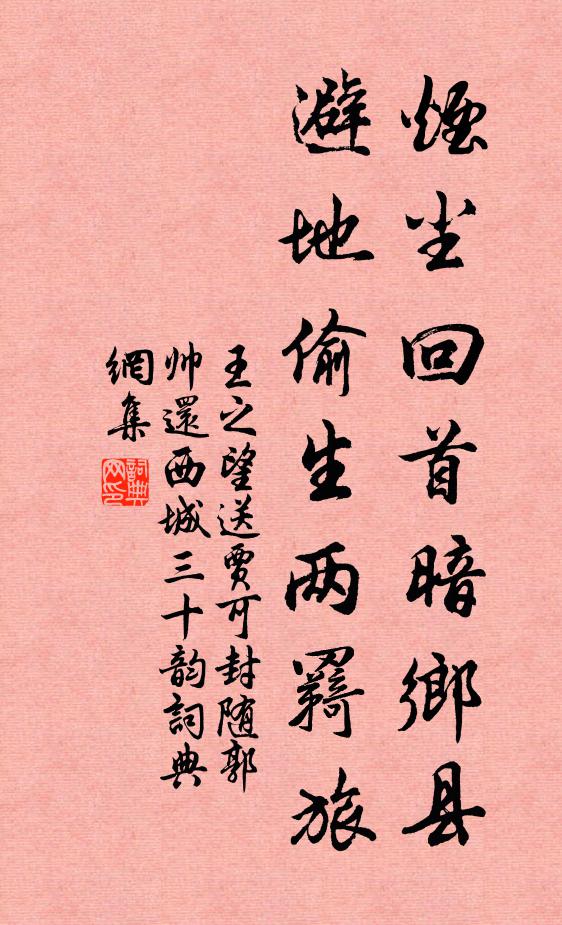 煙尘回首暗鄉县
避地偷生两羁旅
王之望送贾可封随郭
帅還西城三十韵詞典
網集
詞典
网印